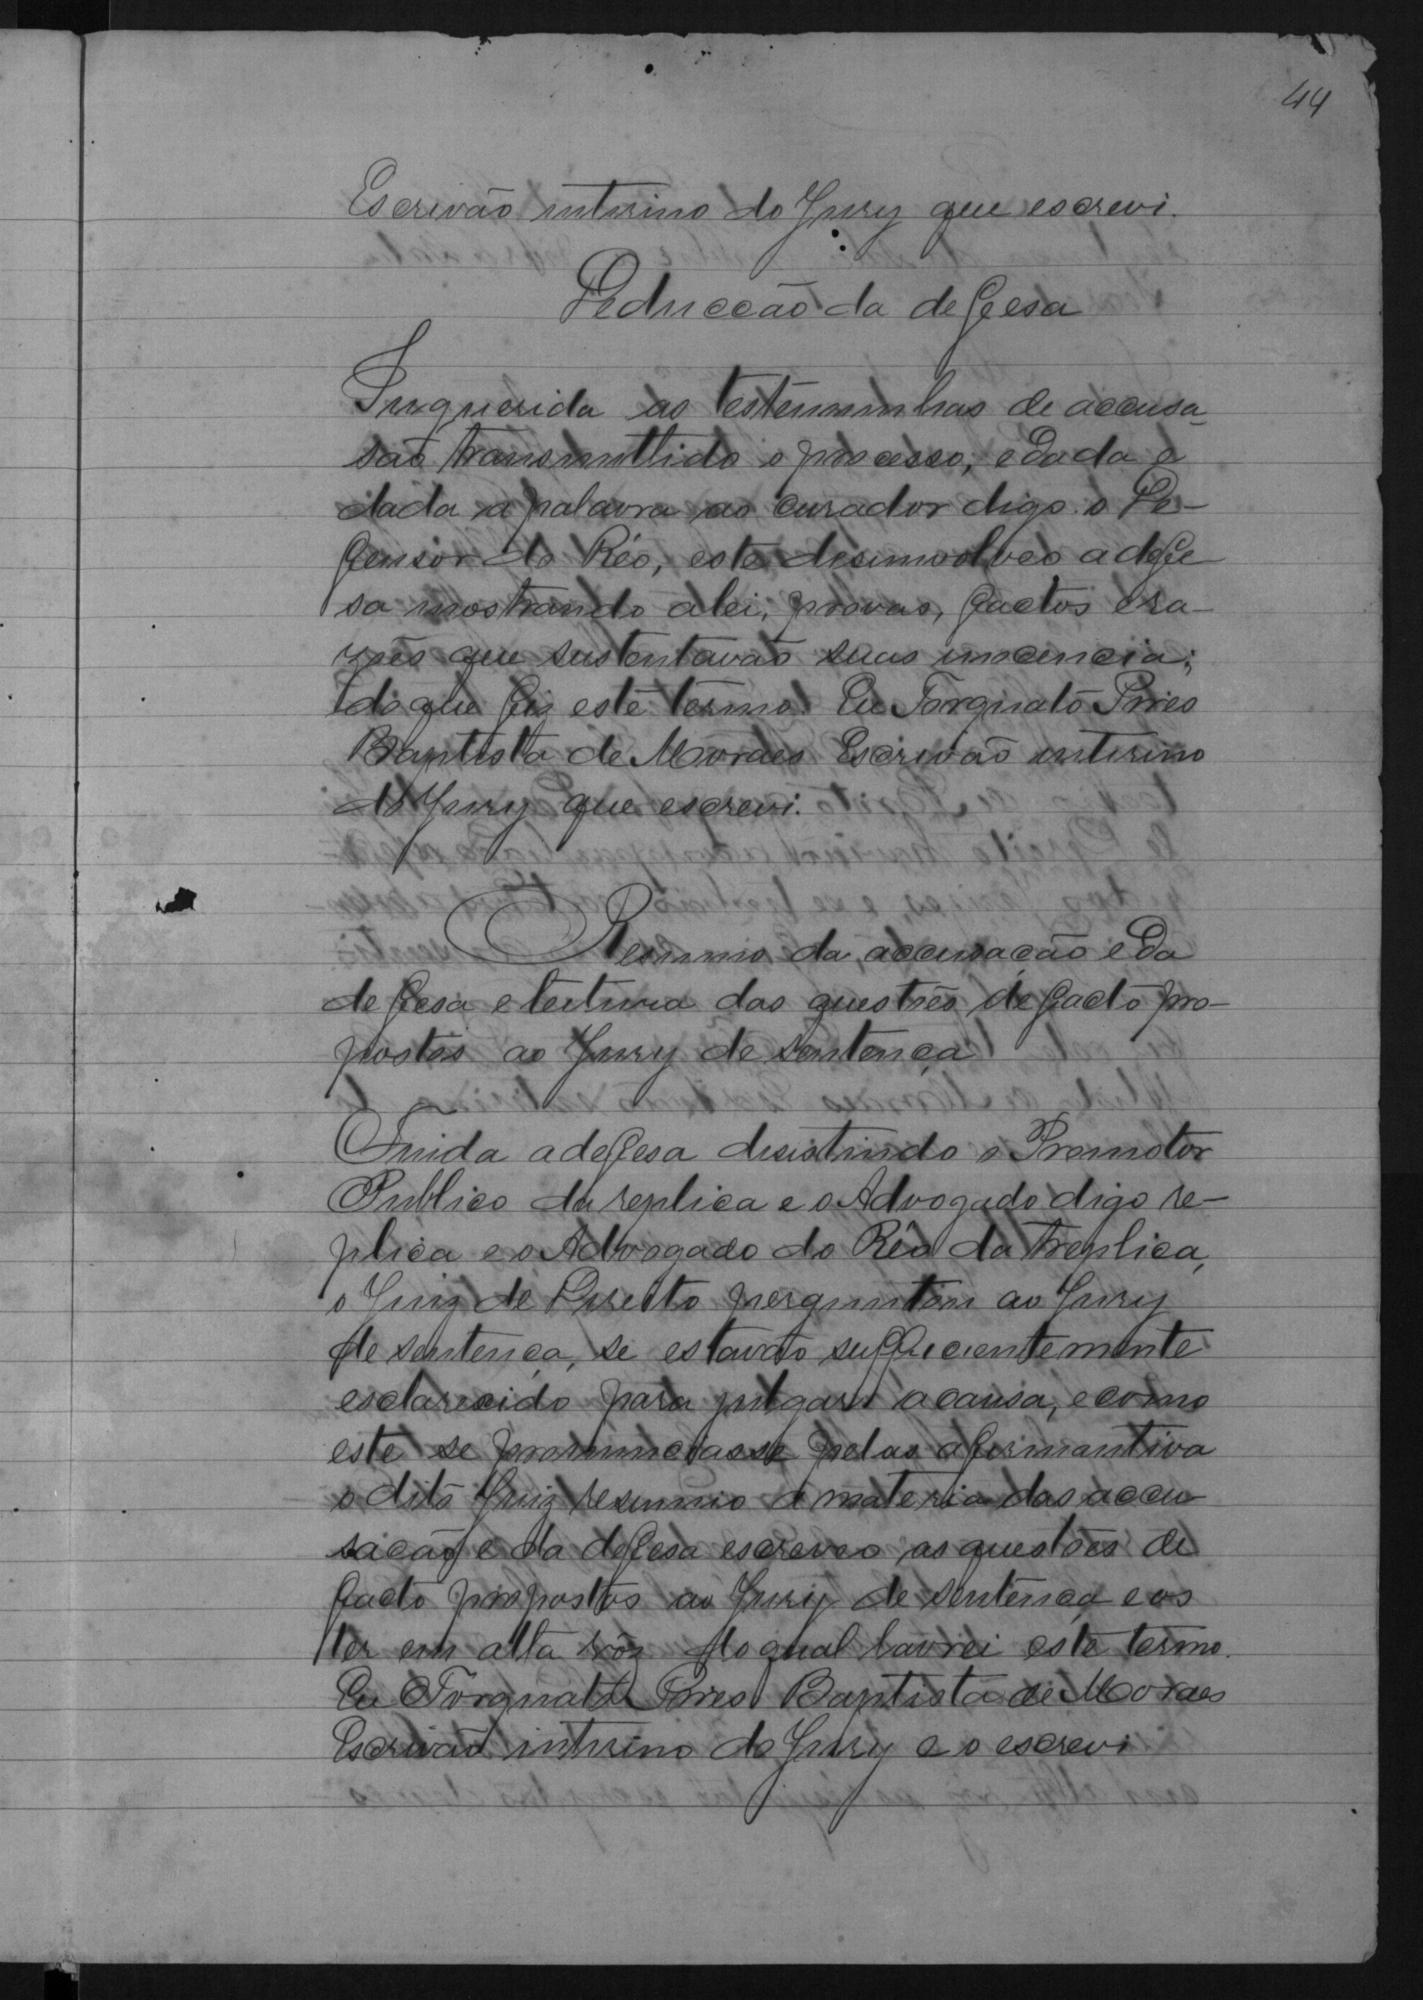 44
Escrivão interino do Jury que escrevi.
Deducção da defesa
Inquerida as testemunhas de accusa-
são transmettido o processo, e dada e
dada a palavra ao curador digo o De-
fensor do Réo, este desenvolveo a defe
sa mostrando a lei, provas, factos e ra-
zões que sustentavão suas inocencia;
do que fiz este termo. Eu Torquato Pires
Baptista de Moraes Escrivão interino
do Jury que escrevi.
Resumo da accusação e da
defesa e leitura das questões de facto pro-
postos ao Jury de sentença
Finida a defesa desistindo o Promotor
Publico da replica e o Advogado digo re-
plica e o Advogado do Réo da treplica,
o Juiz de Direito perguntou ao Jury
de sentença, se estavão sufficientemente
esclarecido para julgar a causa, e como
este se pronunciasse pelas afirmantiva
o dito Juiz resumio a materia das accu
sação e da defesa escreveo as questões de
facto propostos ao Jury de sentença e os
ler em alta vóz do qual lavrei este termo.
Eu Torquato Pires Baptista de Moraes
Escrivão interino do Jury e o escrevi